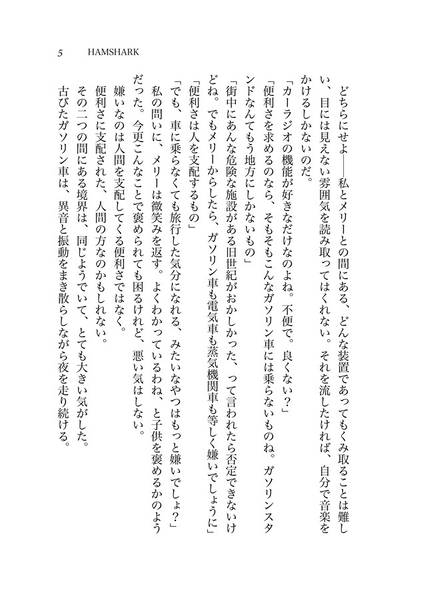 5
HAMSHARK
どちらにせよ――私とメリーとの間にある、どんな装置であってもくみ取ることは難し
い、目には見えない雰囲気を読み取ってはくれない。それを流したければ、自分で音楽を
かけるしかないのだ。
「カーラジオの機能が好きなだけなのよね。不便で。良くない？」
「便利さを求めるのなら、そもそもこんなガソリン車には乗らないものね。ガソリンスタ
ンドなんてもう地方にしかないもの」
「街中にあんな危険な施設がある旧世紀がおかしかった、って言われたら否定できないけ
どね。でもメリーからしたら、ガソリン車も電気車も蒸気機関車も等しく嫌いでしょうに」
「便利さは人を支配するもの」
「でも、車に乗らなくても旅行した気分になれる、みたいなやつはもっと嫌いでしょ？」
私の問いに、メリーは微笑みを返す。よくわかっているわね、と子供を褒めるかのよう
だった。今更こんなことで褒められても困るけれど、悪い気はしない。
嫌いなのは人間を支配してくる便利さではなく。
便利さに支配された、人間の方なのかもしれない。
その二つの間にある境界は、同じようでいて、とても大きい気がした。
古びたガソリン車は、異音と振動をまき散らしながら夜を走り続ける。